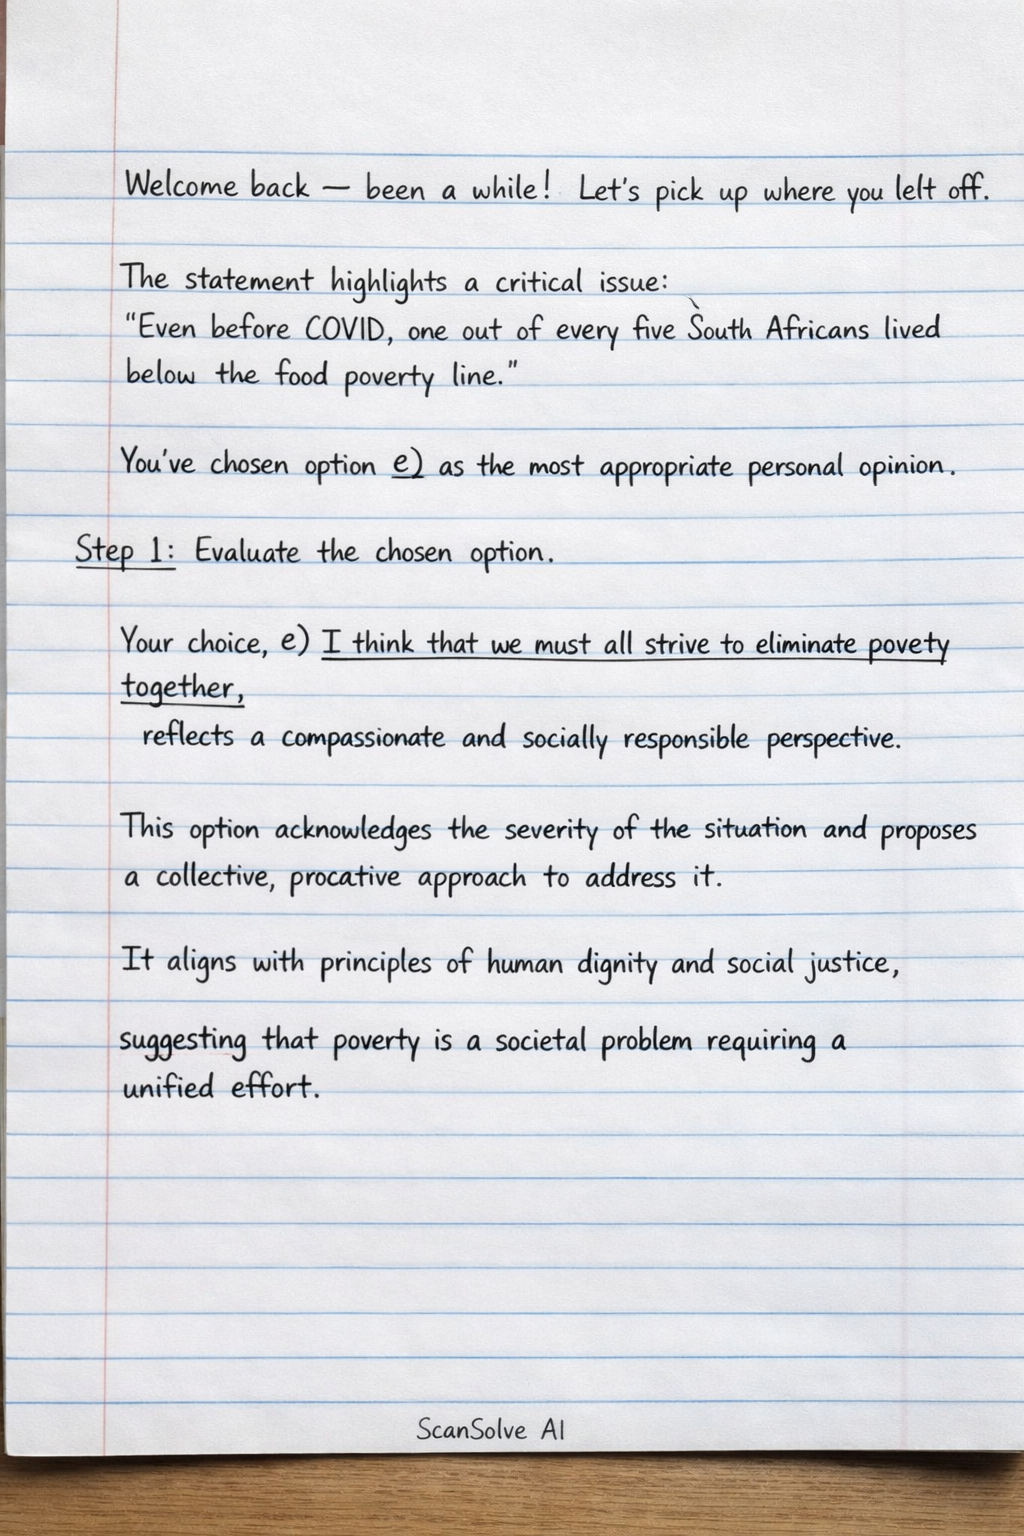 Welcome back — been a while! Let's pick up where you lelt off.
The statement highlights a critical issue:
"Even before COVID, one out of every five South Africans lived
below the food poverty line."
You've chosen option e) as the most appropriate personal opinion.
Step 1: Evaluate the chosen option.
Your choice, e) I think that we must all strive to eliminate povety
together,
reflects a compassionate and socially responsible perspective.
This option acknowledges the severity of the situation and proposes
a collective, procative approach to address it.
It aligns with principles of human dignity and social justice,
suggesting that poverty is a societal problem requiring a
unified effort.
ScanSolve AI